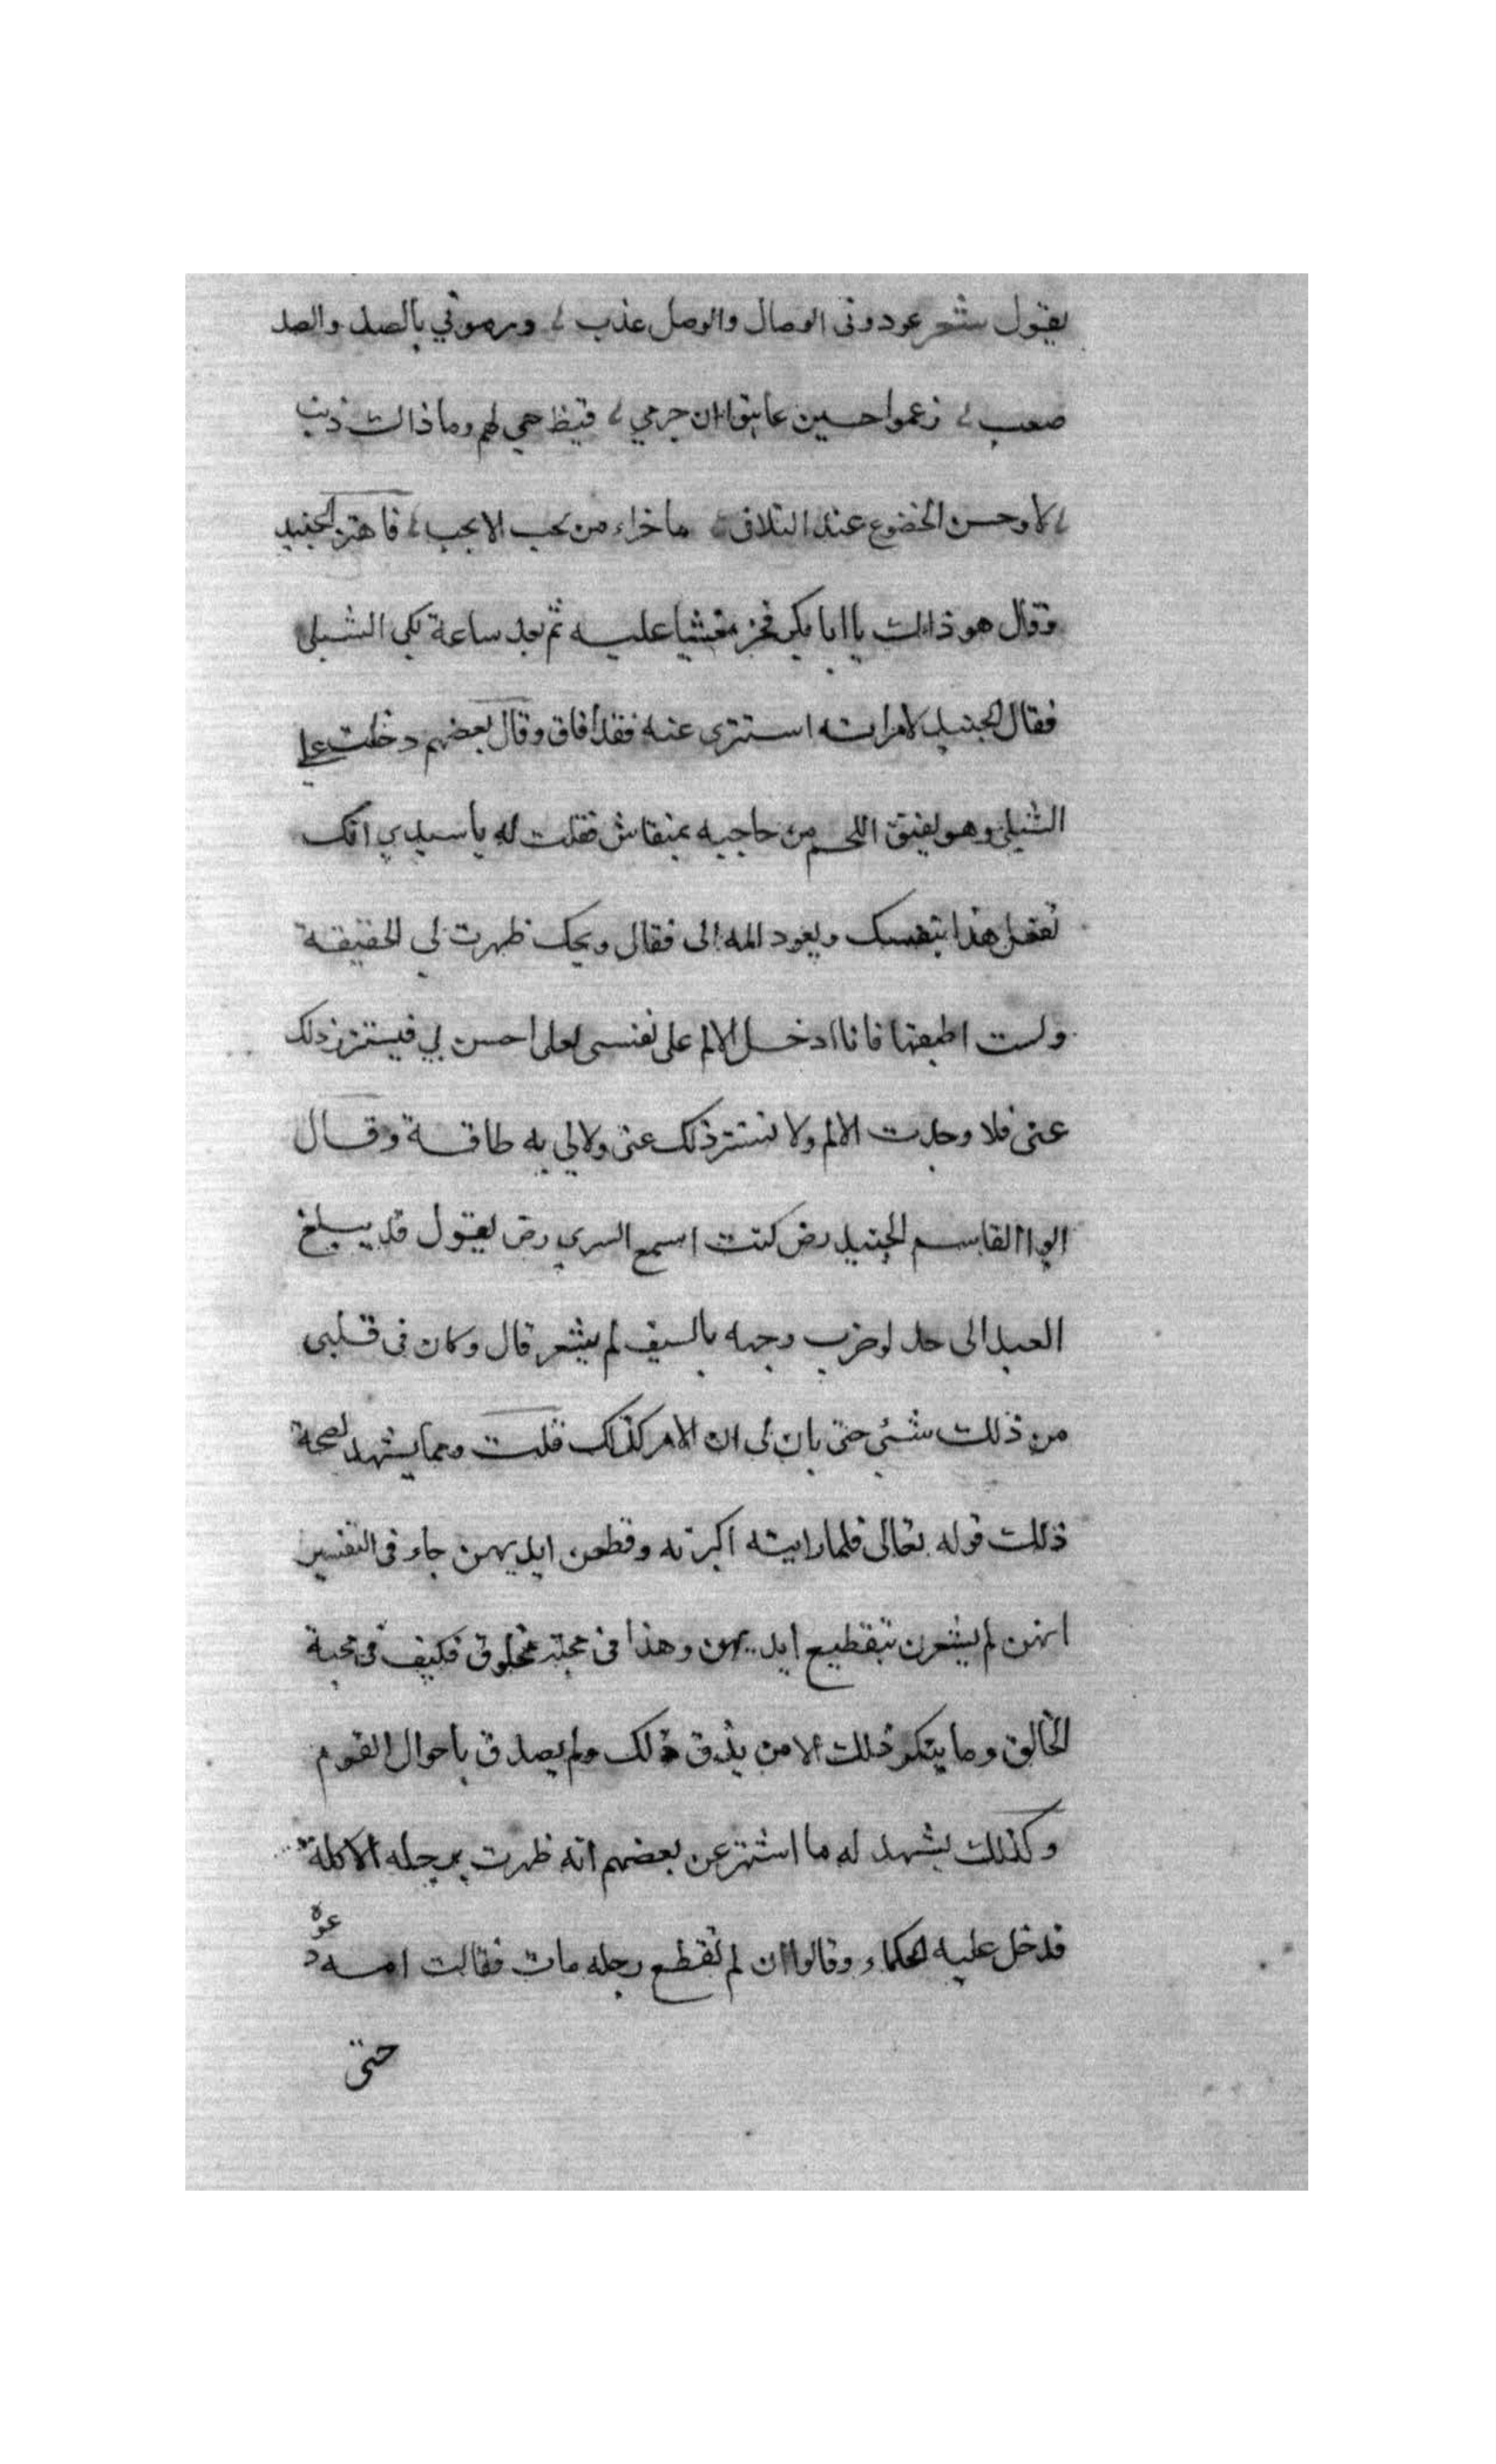 يقول شعر عودونى الوصال والوصل عذب ؎ ورموني بالصد والصد
صعب ؎ زعموا حسين عاتبوا ان جرمي ؎ فيظ حمى لهم وما ذالت ذنب
؎ لا وحسن الخضوع عند التلاقى ؎ ما خزاء من يحب الا يحب ؎ فاهتز الجنيد
وقال هو ذالت يا ابا بكر فخر مغشيا عليه ثم بعد ساعة بكى الشبلى
فقال الجنيد لامراته استترى عنه فقد افاق وقال بعضهم دخلت على
الشبلى وهو ينتق اللحم من حاجبه بمنقاش فقلت له يا سيدي انك
تفعل هذا بنفسك ويعود المه الى فقال ويحك ظهرت لي الحقيقة
ولست اطيقها فانا ادخل الالم على نفسى لعلى احسن بي فيستتر ذلك
عنى فلا وجدت الالم ولا تستتر ذلك عنى ولا لي به طاقة وقال
ابوا القاسم الجنيد رض كنت اسمع السري رض يقول قد يبلغ
العبد الى حد لو ضرب وجهه بالسيف لم يشعر قال وكان فى قلبى
من ذلك شئى حتى بان لى ان الامر كذلك قلت ومما يشهد لصحة
ذلك قوله تعالى فلما رايته اكبرنه وقطعن ايديهن جاء فى التفسير
انهن لم يشعرن بتقطيع ايديهن وهذا فى محبة مخلوق فكيف فى محبة
الخالق وما ينكر ذلك الا من يذق ذلك ولم يصدق باحوال القوم
وكذلك يشهد له ما اشتهر عن بعضهم انه ظهرت برجله الاكلة
فدخل عليه الحكماء وقالوا ان لم تقطع رجله مات فقالت امه دعوه
حتى